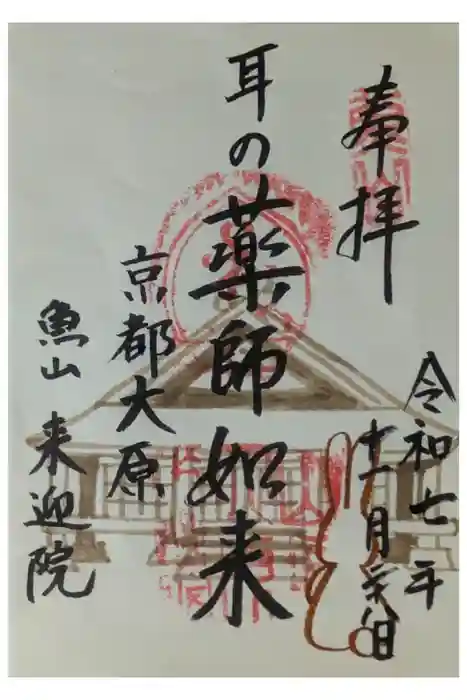 奉拝
令和七年
十一月六日
耳の薬師如来
京都大原
魚山 来迎院